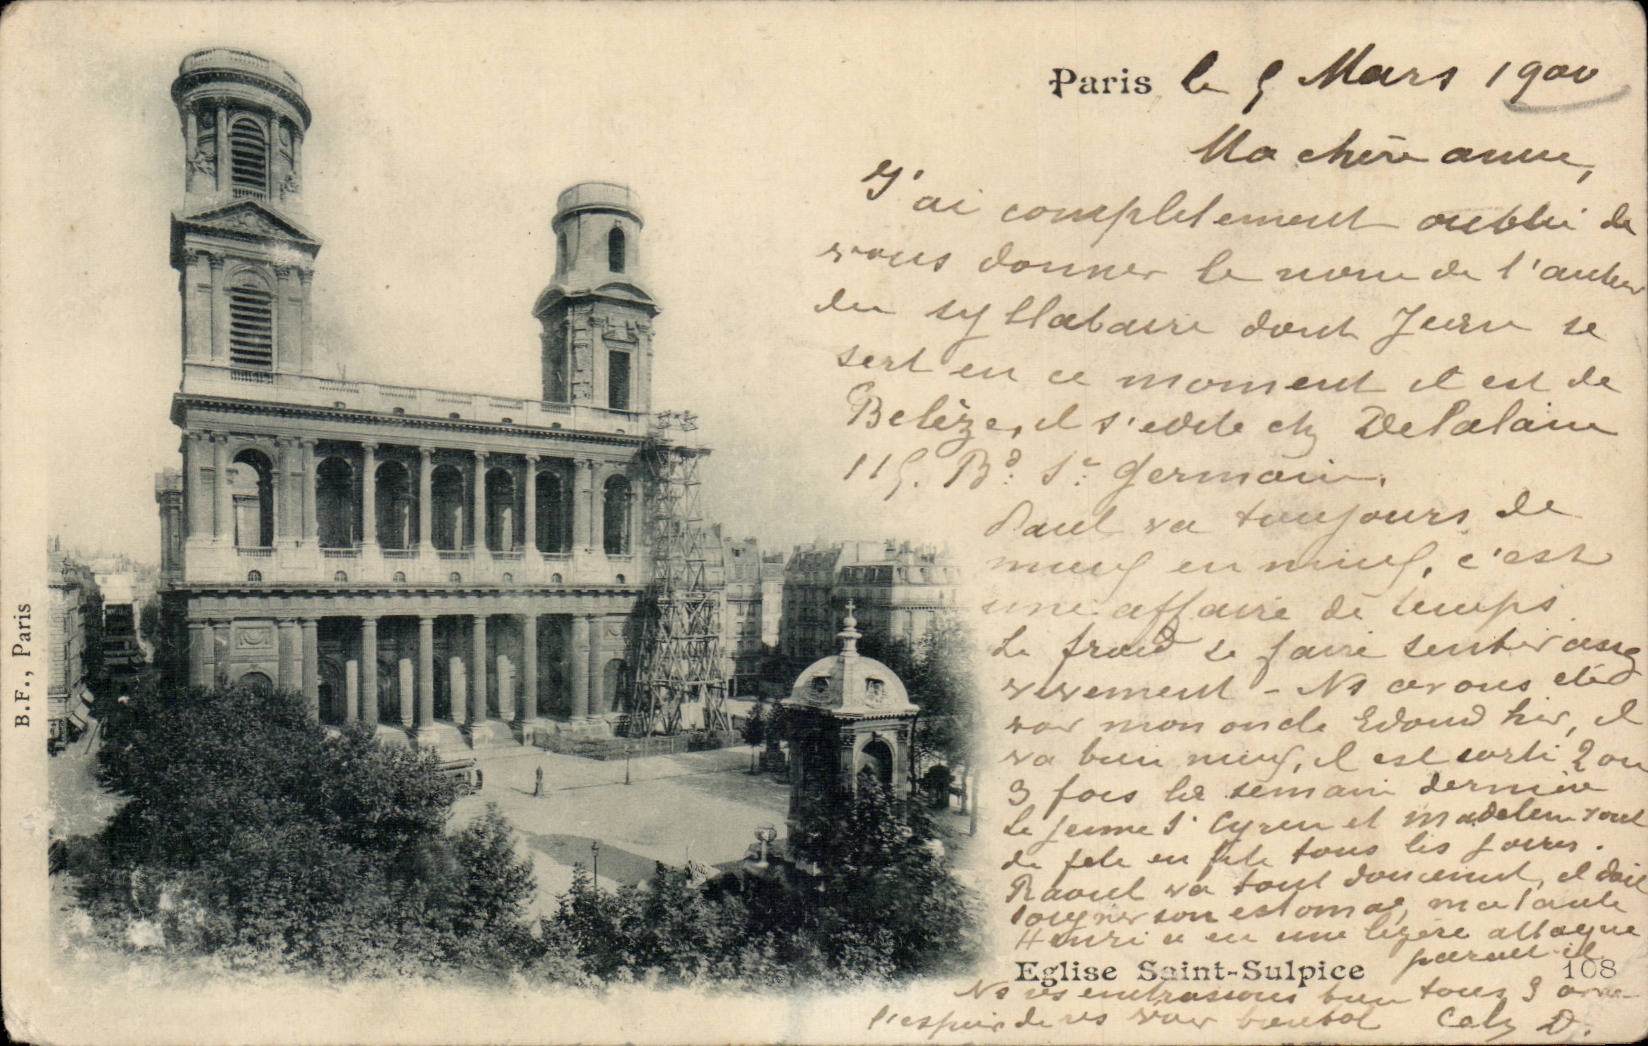 Paris le 5 Mars 1900
Ma chère amie,
J'ai complètement oublié de
vous donner le nom de l'auteur
du syllabaire dont Jean se
sert en ce moment il est de
Belèze, il s'édite chz Delalain
115. Bd. St. Germain.
Paul va toujours de
mieux en mieux, c'est
une affaire de temps.
Le froid se faire sentir assez
vivement - Ns avons été
voir mon oncle Edouard hier, il
va bien mieux, il est sorti 2 ou
3 fois la semaine dernière
Le jeune St Cyrien et Madeleine sont
de fête en fête tous les jours.
Raoul va tout doucement, il doit
soigner son estomac, ma tante
Henri a eu une légère attaque
paraît-il
Eglise Saint-Sulpice 108
Ns vs embrassons bien tous 3 avec
l'espoir de vs voir bientôt D.
B. F., Paris